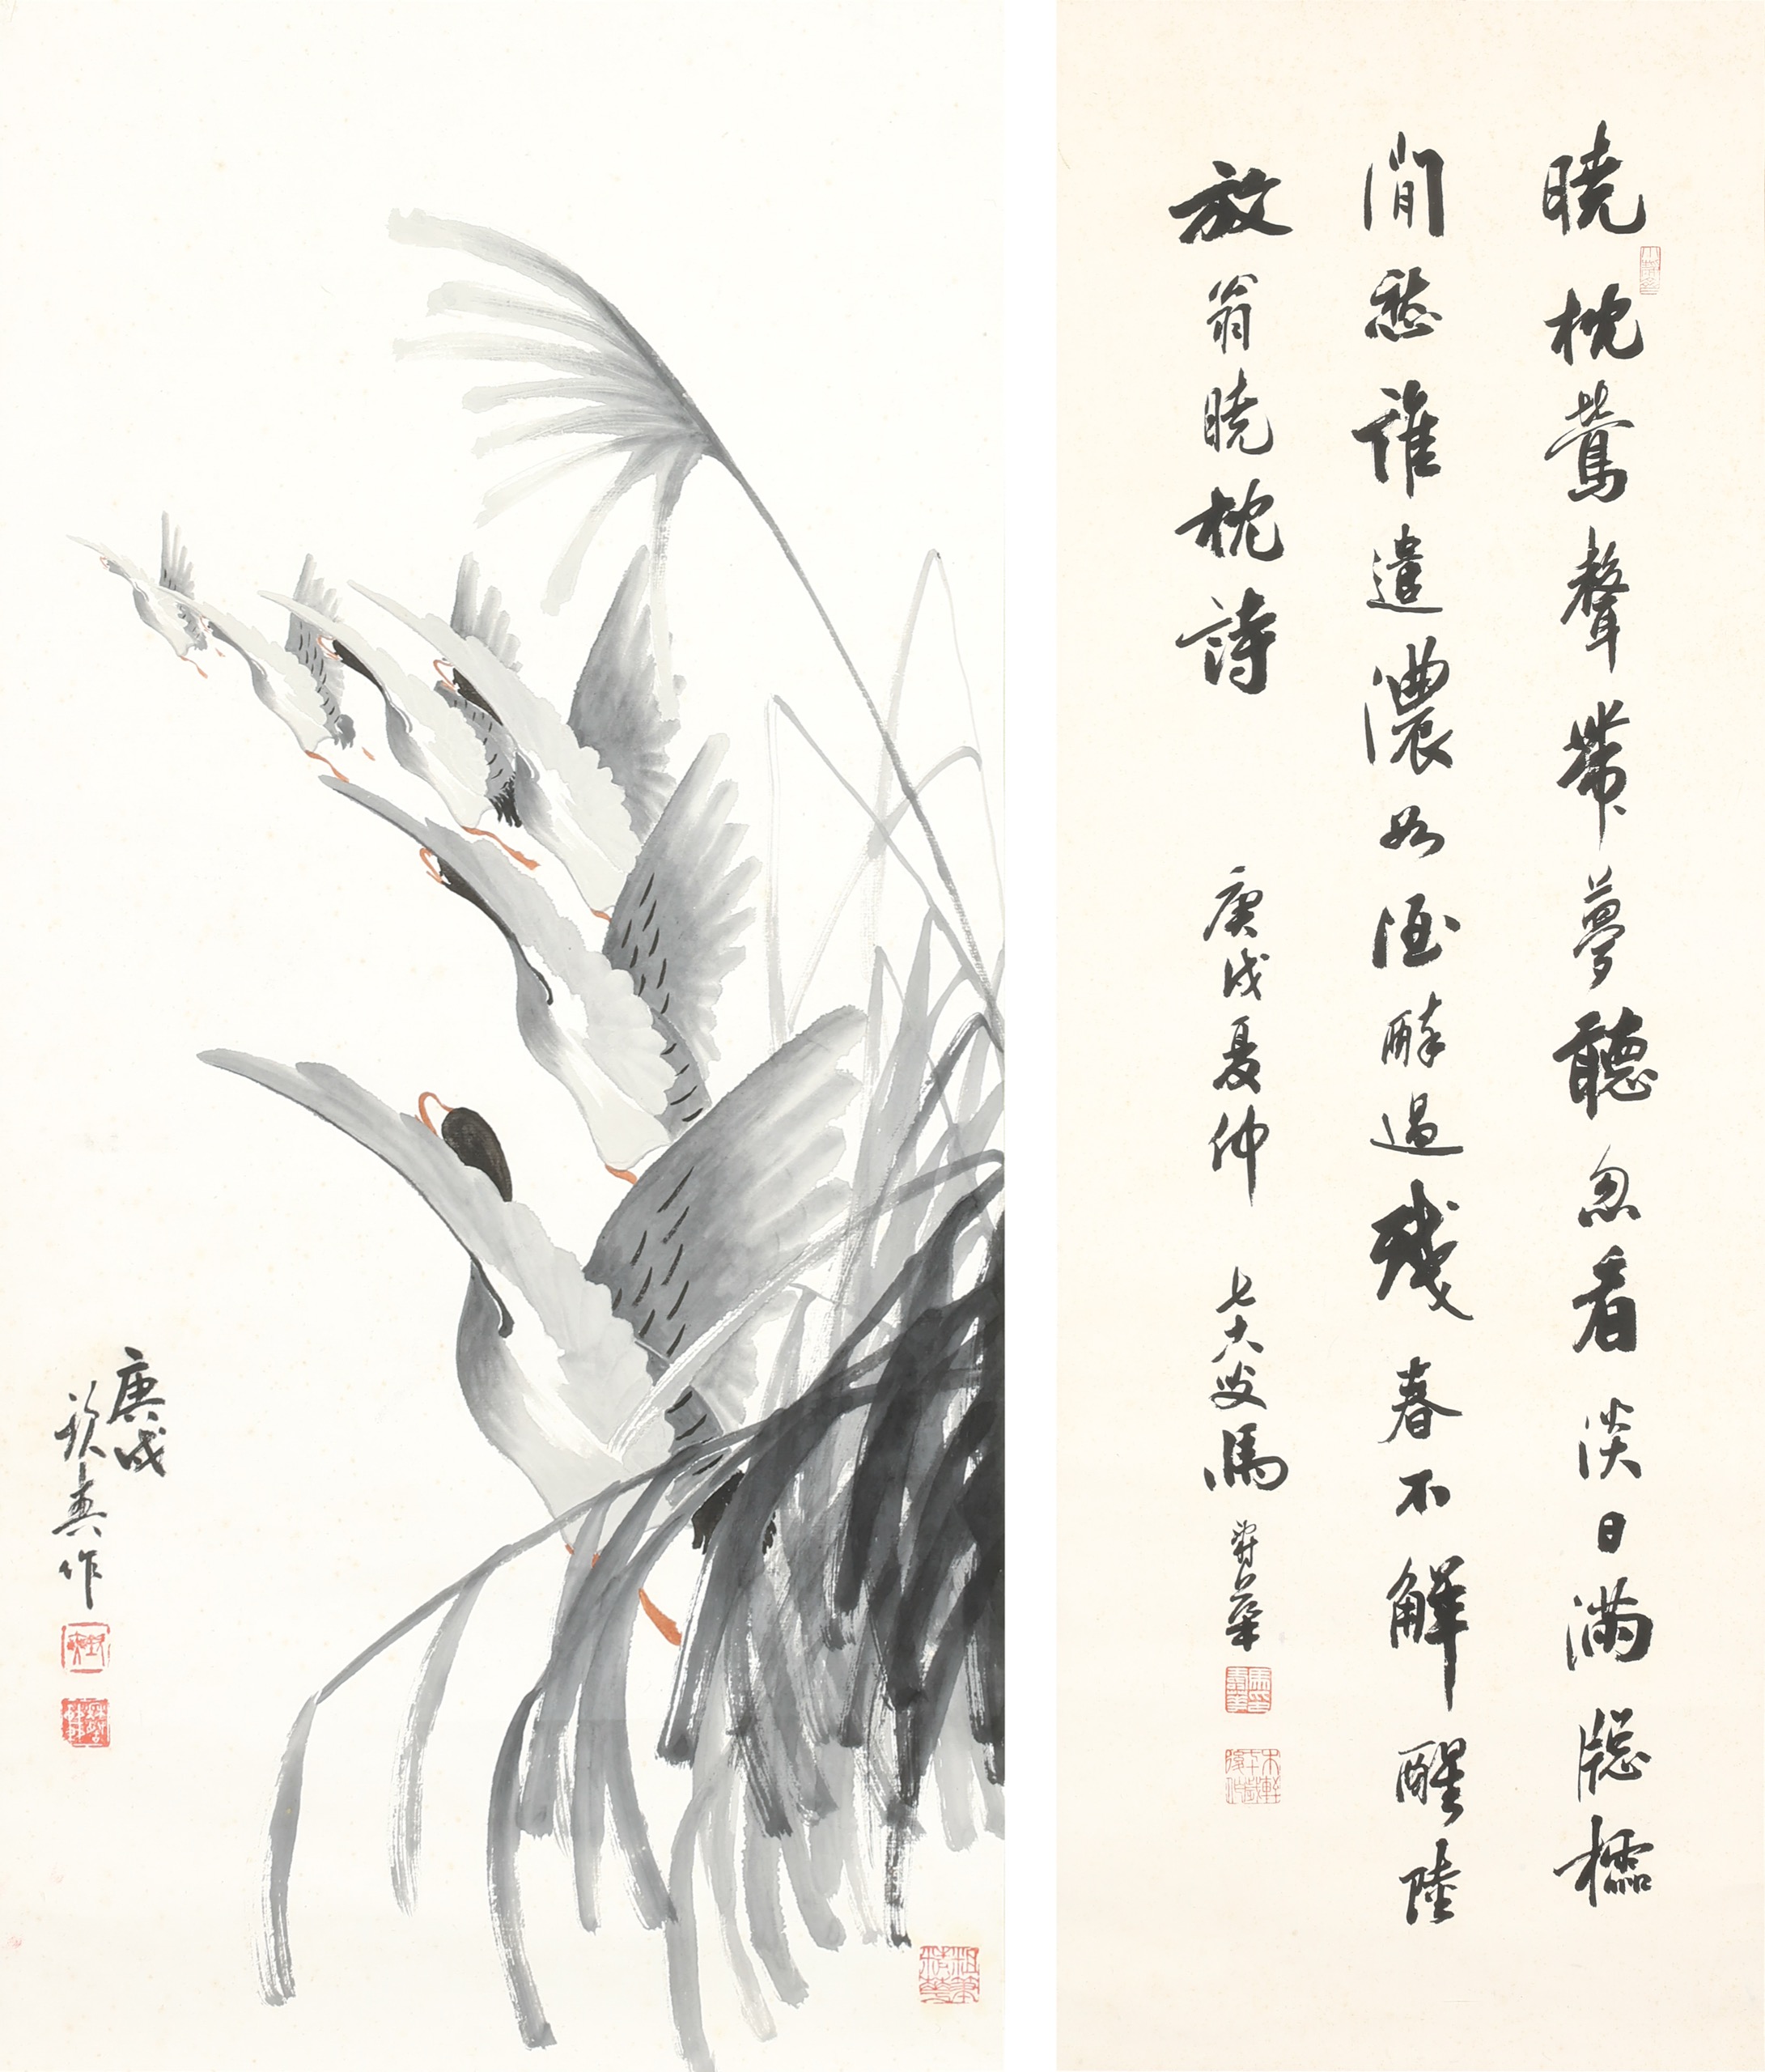 曉枕鶯聲帶夢聽忽看淡日滿窗櫺
閒愁誰遣濃如酒醉過殘春不解醒陸
放翁曉枕詩
庚戌夏仲 七十六叟馬壽華
庚戌
歘真作